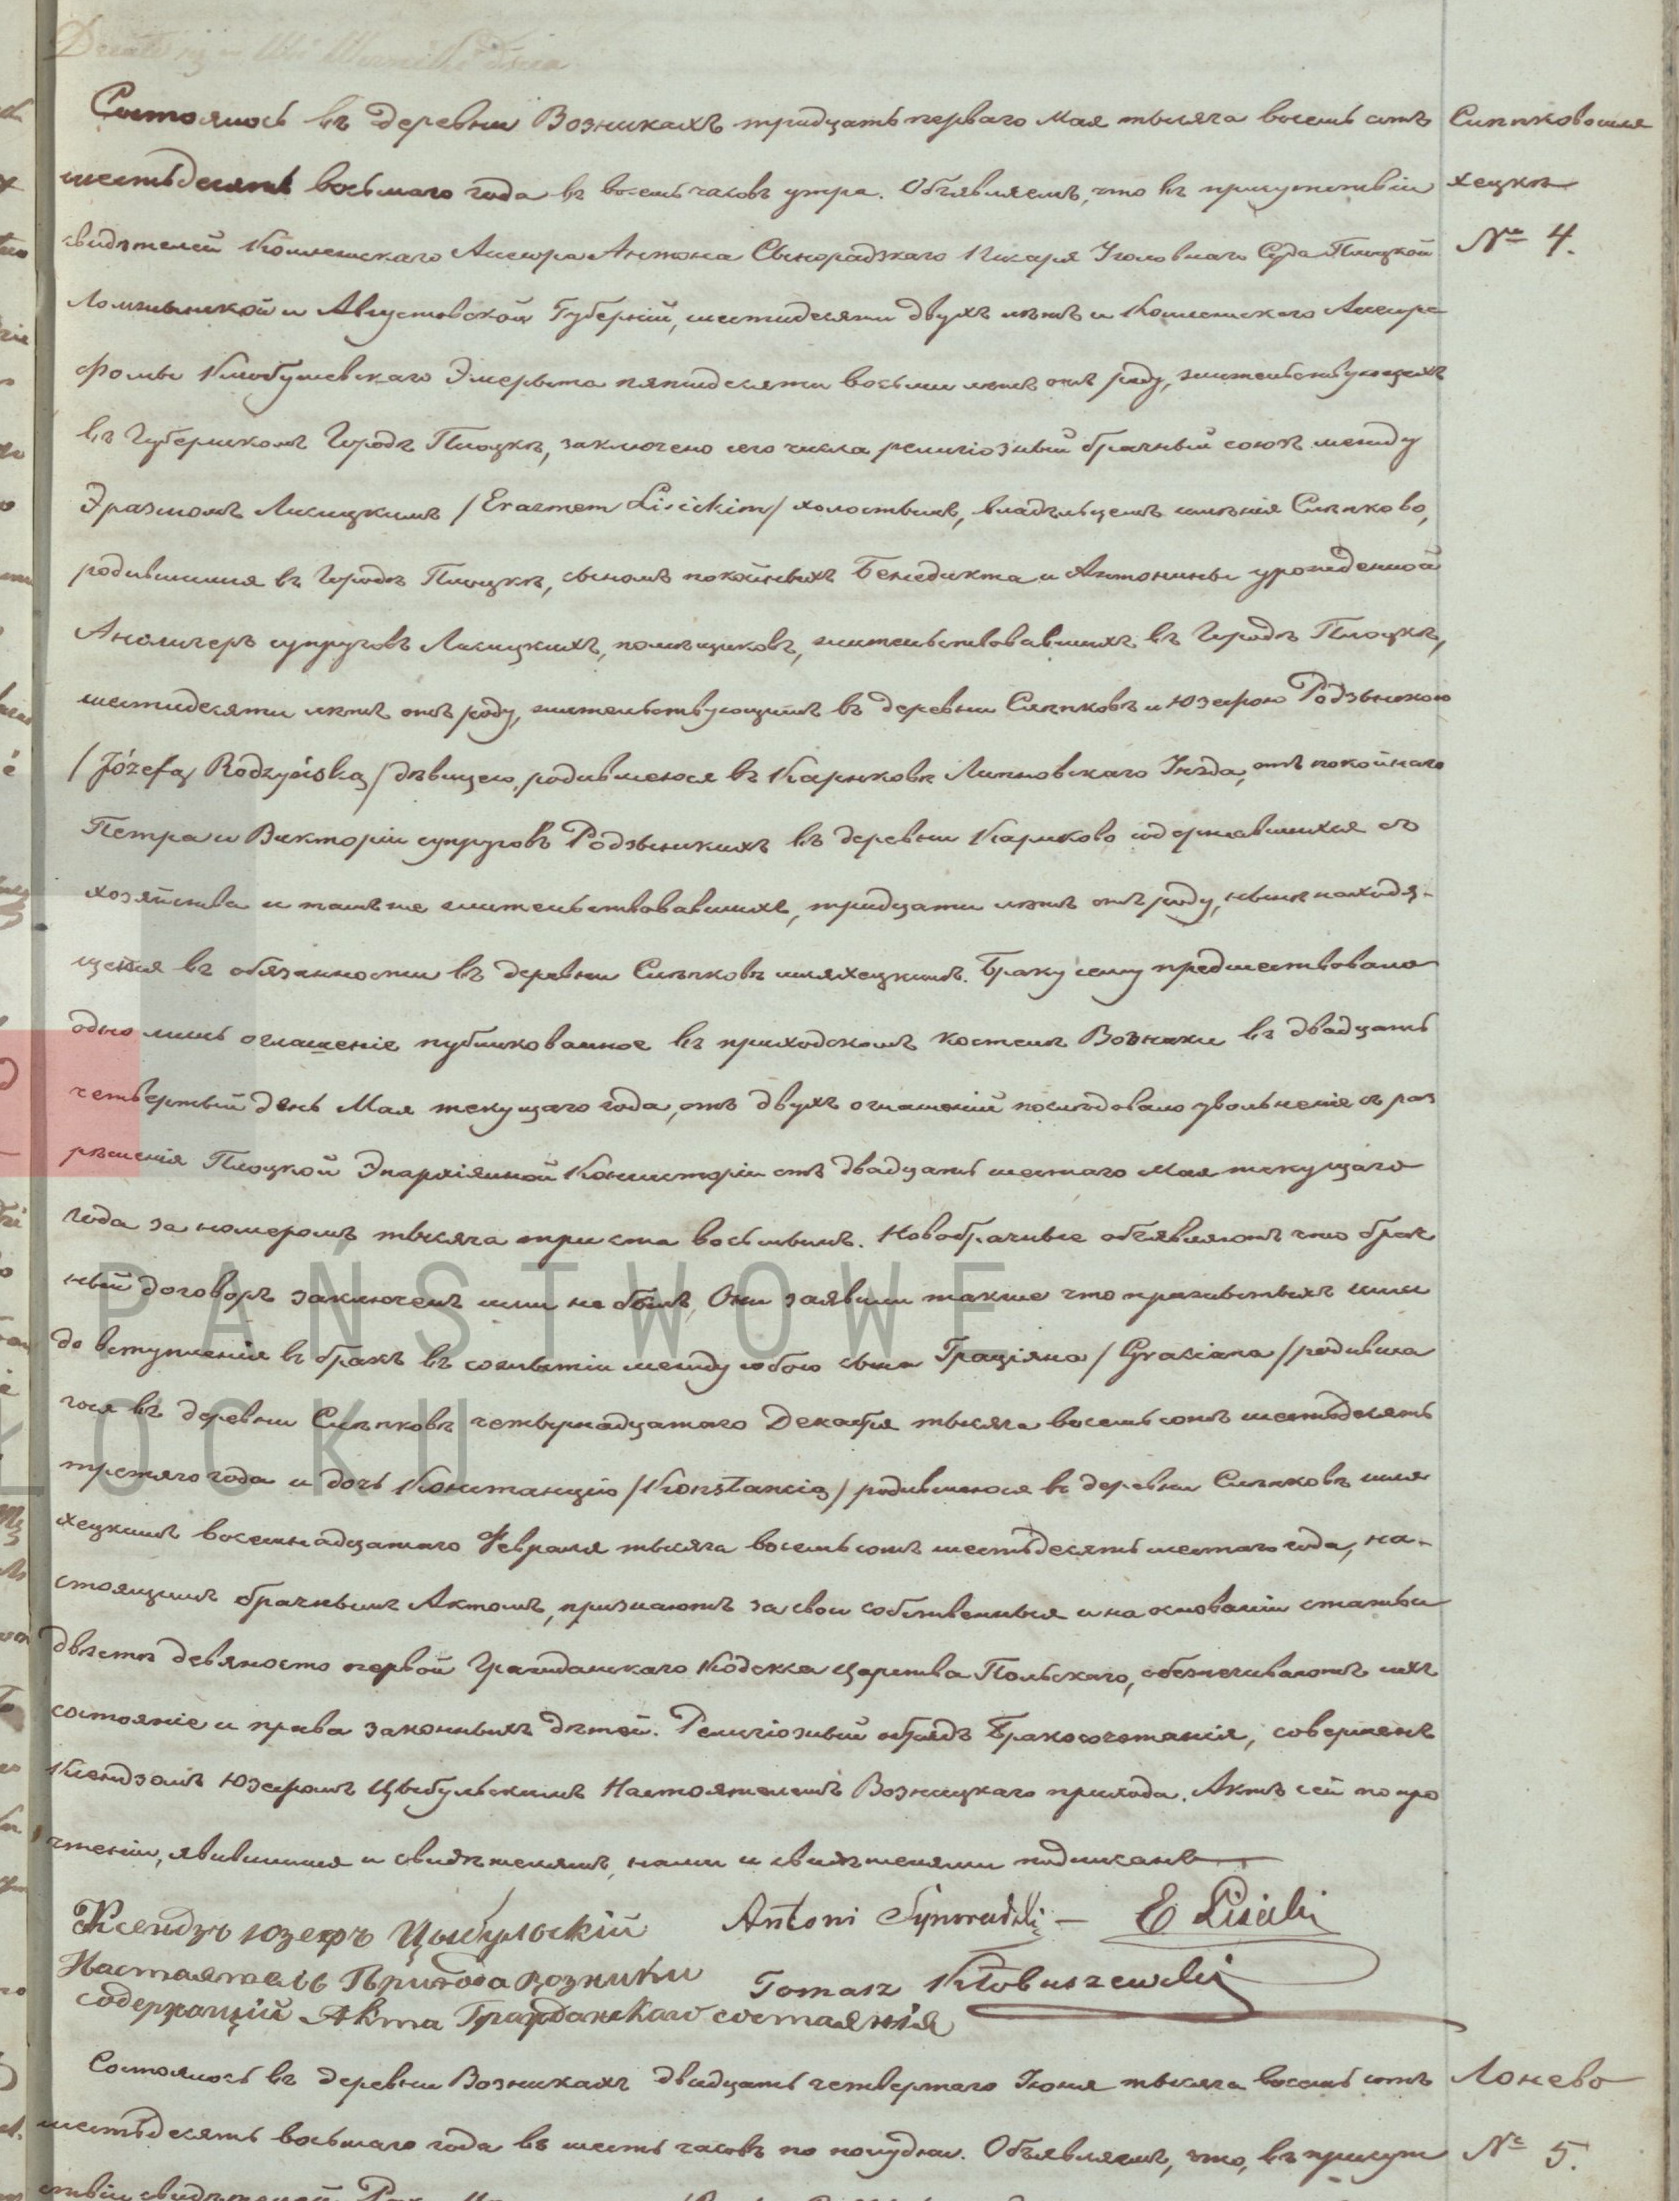 Состоялось въ деревни Возникахъ тридцать перваго Мая тысяча восемь сотъ
шестьдесятъ восьмаго года въ восемь часовъ утра. Объявляемъ, что въ присутствіи
свидѣтелей Коллежскаго Ассесора Антона Сынорадзкаго Писаря Уголовнаго Суда Плоцкой
Ломжинской и Августовской Губерній, шестидесяти двухъ лѣтъ и Коллежскаго Ассесора
Фомы Клобушевскаго Эмерыта пятидесяти восьми лѣтъ отъ роду, жительствующихъ
въ Губернскомъ Городѣ Плоцкѣ, заключено сего числа религіозный брачный союзъ между
Эразмомъ Лисицкимъ /Erazmem Lisickim/ холостымъ, владѣльцемъ имѣнія Слѣпково,
родившимся въ Городѣ Плоцкѣ, сыномъ покойныхъ Бенедикта и Антонины урожденной
супруговъ Лисицкихъ, помѣщиковъ, жительствовавшихъ въ Городѣ Плоцкѣ,
шестидесяти лѣтъ отъ роду, жительствующимъ въ деревни Слѣпковѣ и Юзефою Родзынскою
/Józefą Rodzyńską/ дѣвицею, родившеюся въ Карнковѣ Липновскаго Уѣзда, отъ покойнаго
Петра и Викторіи супруговъ Родзынскихъ въ деревни Карнково содержавшихся съ
хозяйства и тамъже жительствовавшихъ, тридцати лѣтъ отъ роду, нынѣ находя-
щеюся въ обязанности въ деревни Слѣпковѣ шляхецкимъ. Браку сему предшествовало
одно лишь оглашеніе публикованное въ приходскомъ костелѣ Возники въ двадцать
четвертый день Мая текущаго года, отъ двухъ оглашеній послѣдовало увольненіе съ раз
рѣшенія Плоцкой Эпархіяльной Консисторіи отъ двадцать шестаго Мая текущаго
года за номеромъ тысяча триста восьмымъ. Новобрачные объявляютъ что брач
ный договоръ заключенъ ими не былъ, Они заявили также что прижитыхъ ими
до вступленія въ бракъ въ сожитіи между собою сына Граціяна /Graciana/ родивша
гося въ деревни Слѣпковѣ четырнадцатаго Декабря тысяча восемьсотъ шестьдесятъ
третяго года и дочь Констанцію /Konstancią/ родившеюся въ деревни Слѣпковѣ шля
хецкимъ восемнадцатаго Февраля тысяча восемьсотъ шестьдесятъ шестаго года, на-
стоящимъ брачнымъ Актомъ, признаютъ за свои собственныя и на основаніи статьи
двѣсти девяносто первой Гражданскаго Кодекса Царства Польскаго, обезпечиваютъ ихъ
состояніе и права законныхъ дѣтей. Религіозный обрядъ Бракосочетанія, совершенъ
Ксендзомъ Юзефомъ Цыбульскимъ Настоятелемъ Возницкаго прихода. Актъ сей по про
чтеніи, явившимся и свидѣтелямъ, нами и свидѣтелями подписанъ
Ксендзъ Юзефъ Цыбульскій
Настаятель Прихода Возники
содержащій Акта Гражданскаго состаянія
Antoni Synoradzki
E Lisicki
Tomasz Kłobuszewski
Слѣпково шля
хецкѣ
№ 4.
Состоялось въ деревни Возникахъ двадцать четвертаго Іюня тысяча восемь сотъ
шестьдесятъ восьмаго года въ шесть часовъ по полудни. Объявляемъ, что, въ присут
ствіи свидѣтелей
Лонево
№ 5.
PAŃSTWOWE
ŁOCKU